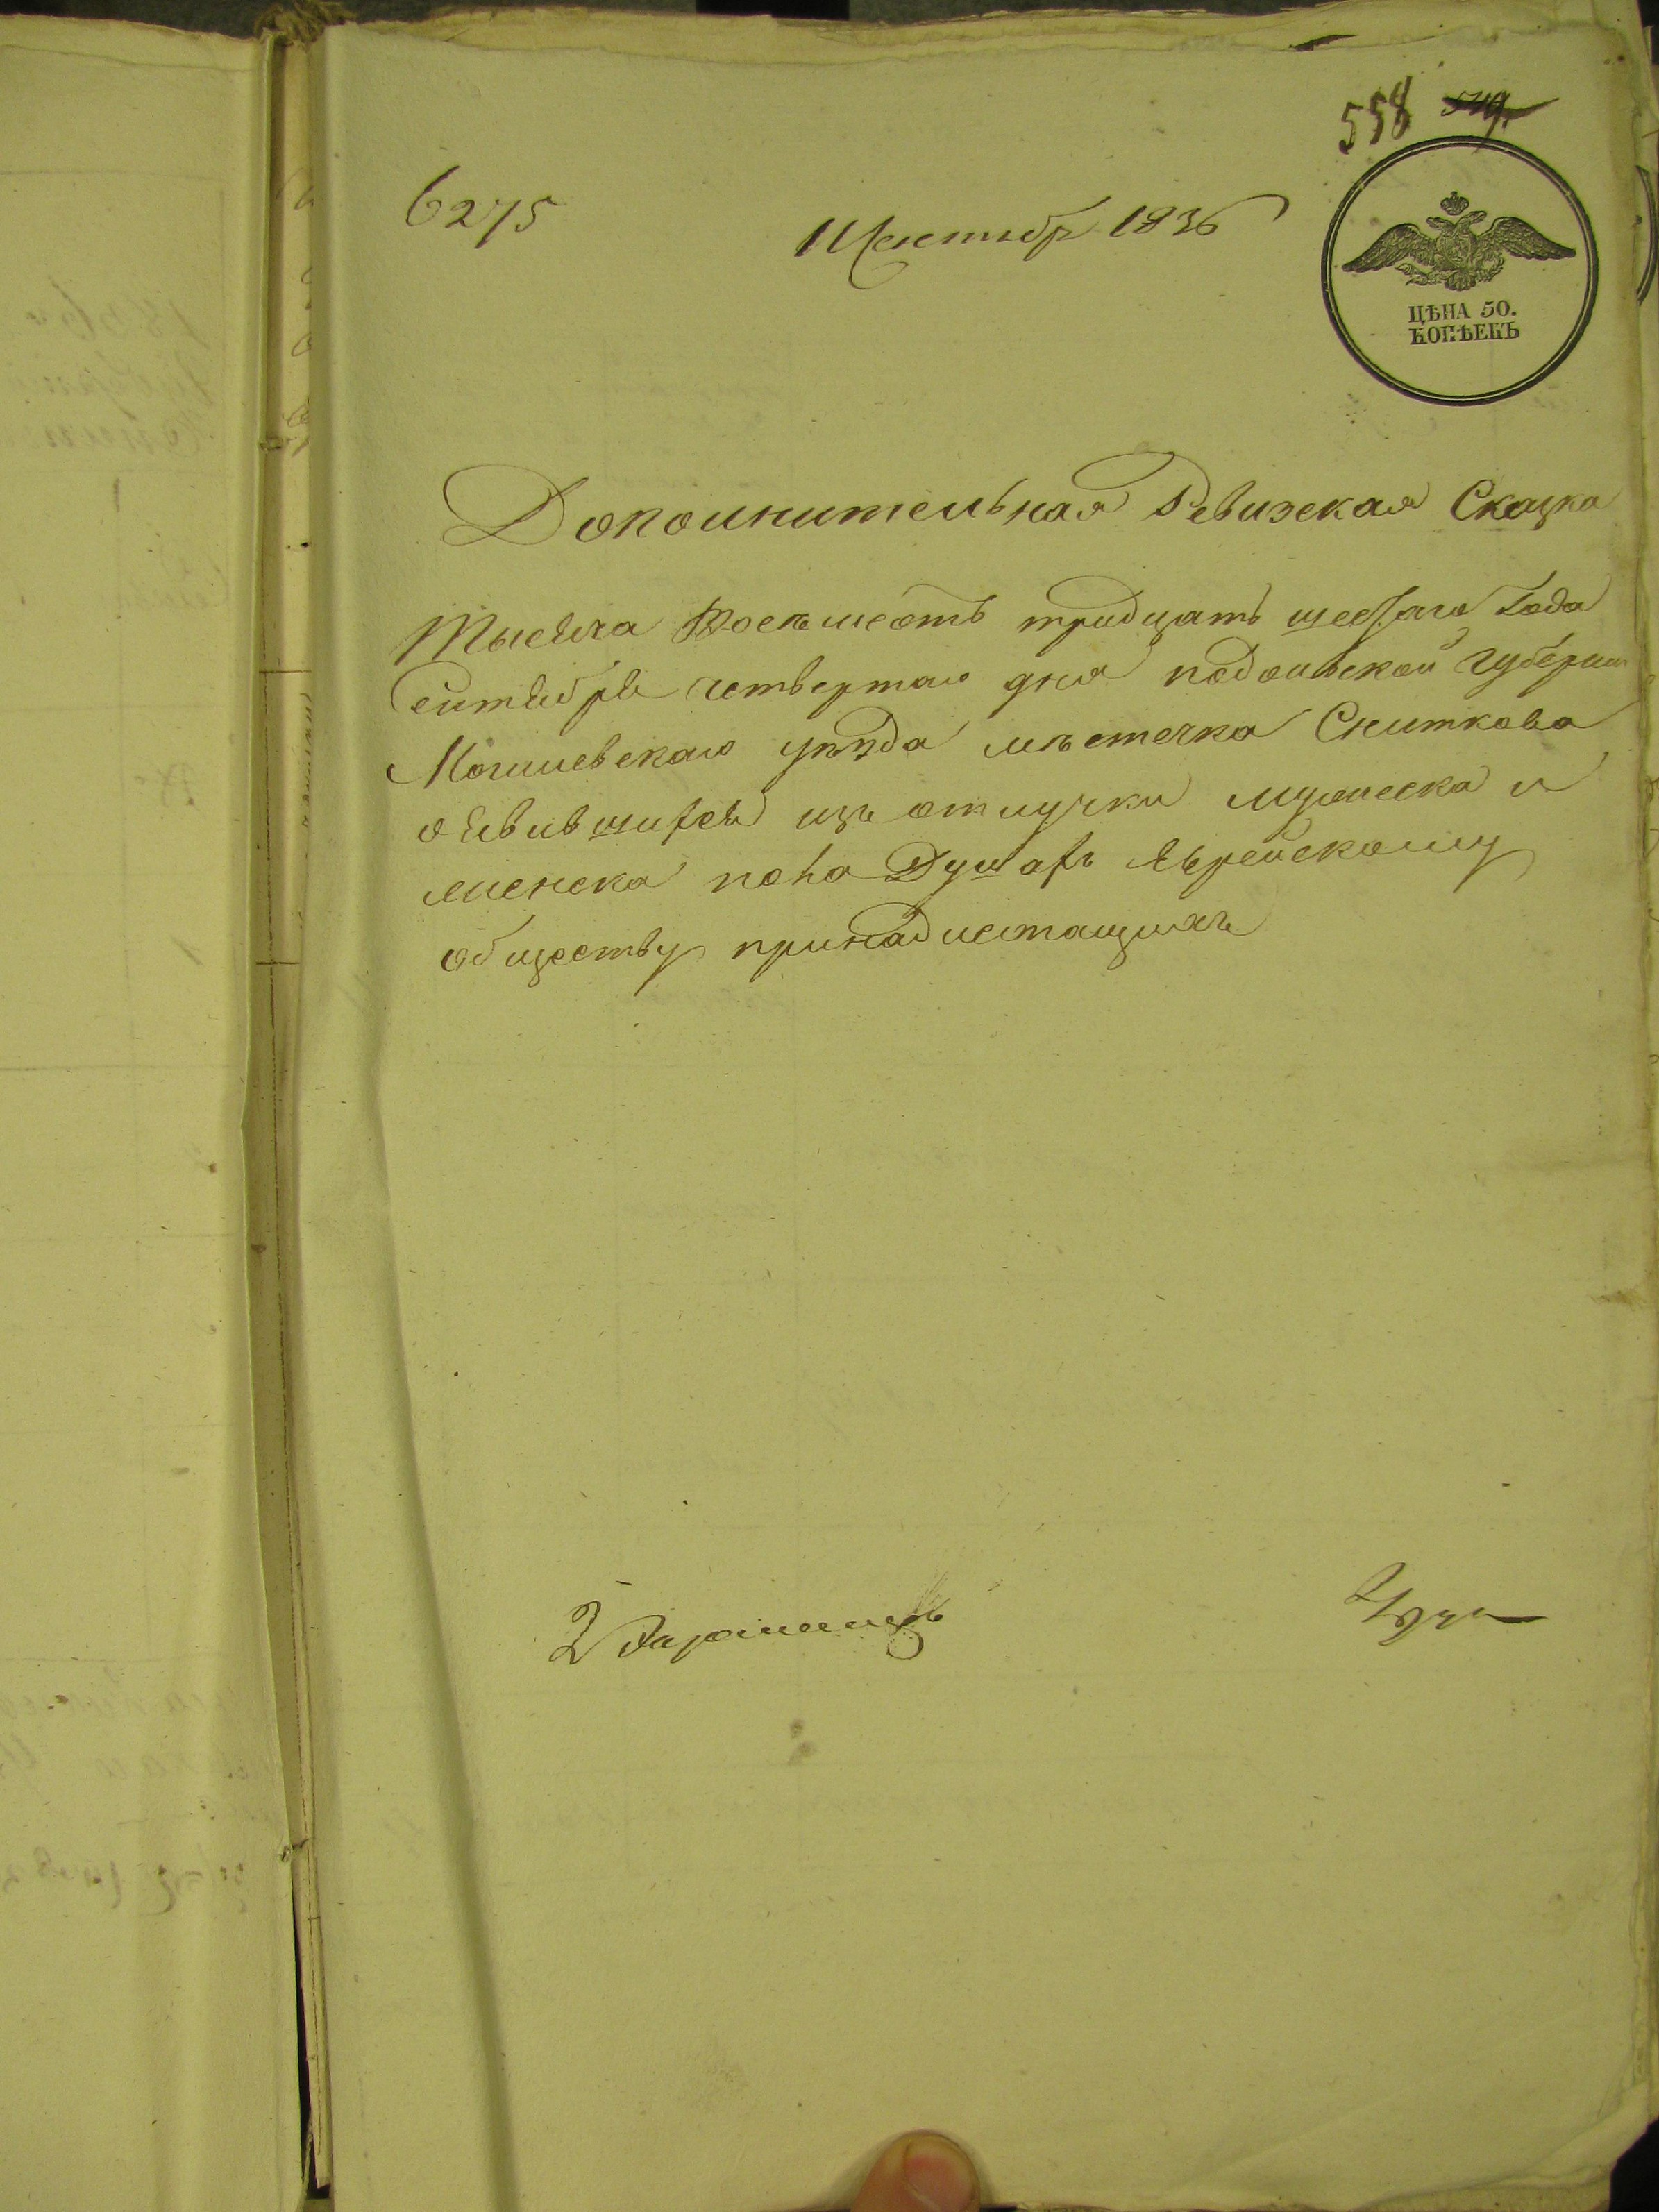 558 549
6275
11 Сентябр 1836
ЦѢНА 50.
КОПѢЕКЪ
Дополнительная Ревизская Сказка
Тысяча Восемсотъ тридцать шестаго Года
Сентября четвертаго дня подольской Губернии
Могилевскаго уѣзда мѣстечка Сниткова
о явившихся изъ отлучки мужеска и
женска пола Душахъ Еврейскому
обществу принадлежащихъ